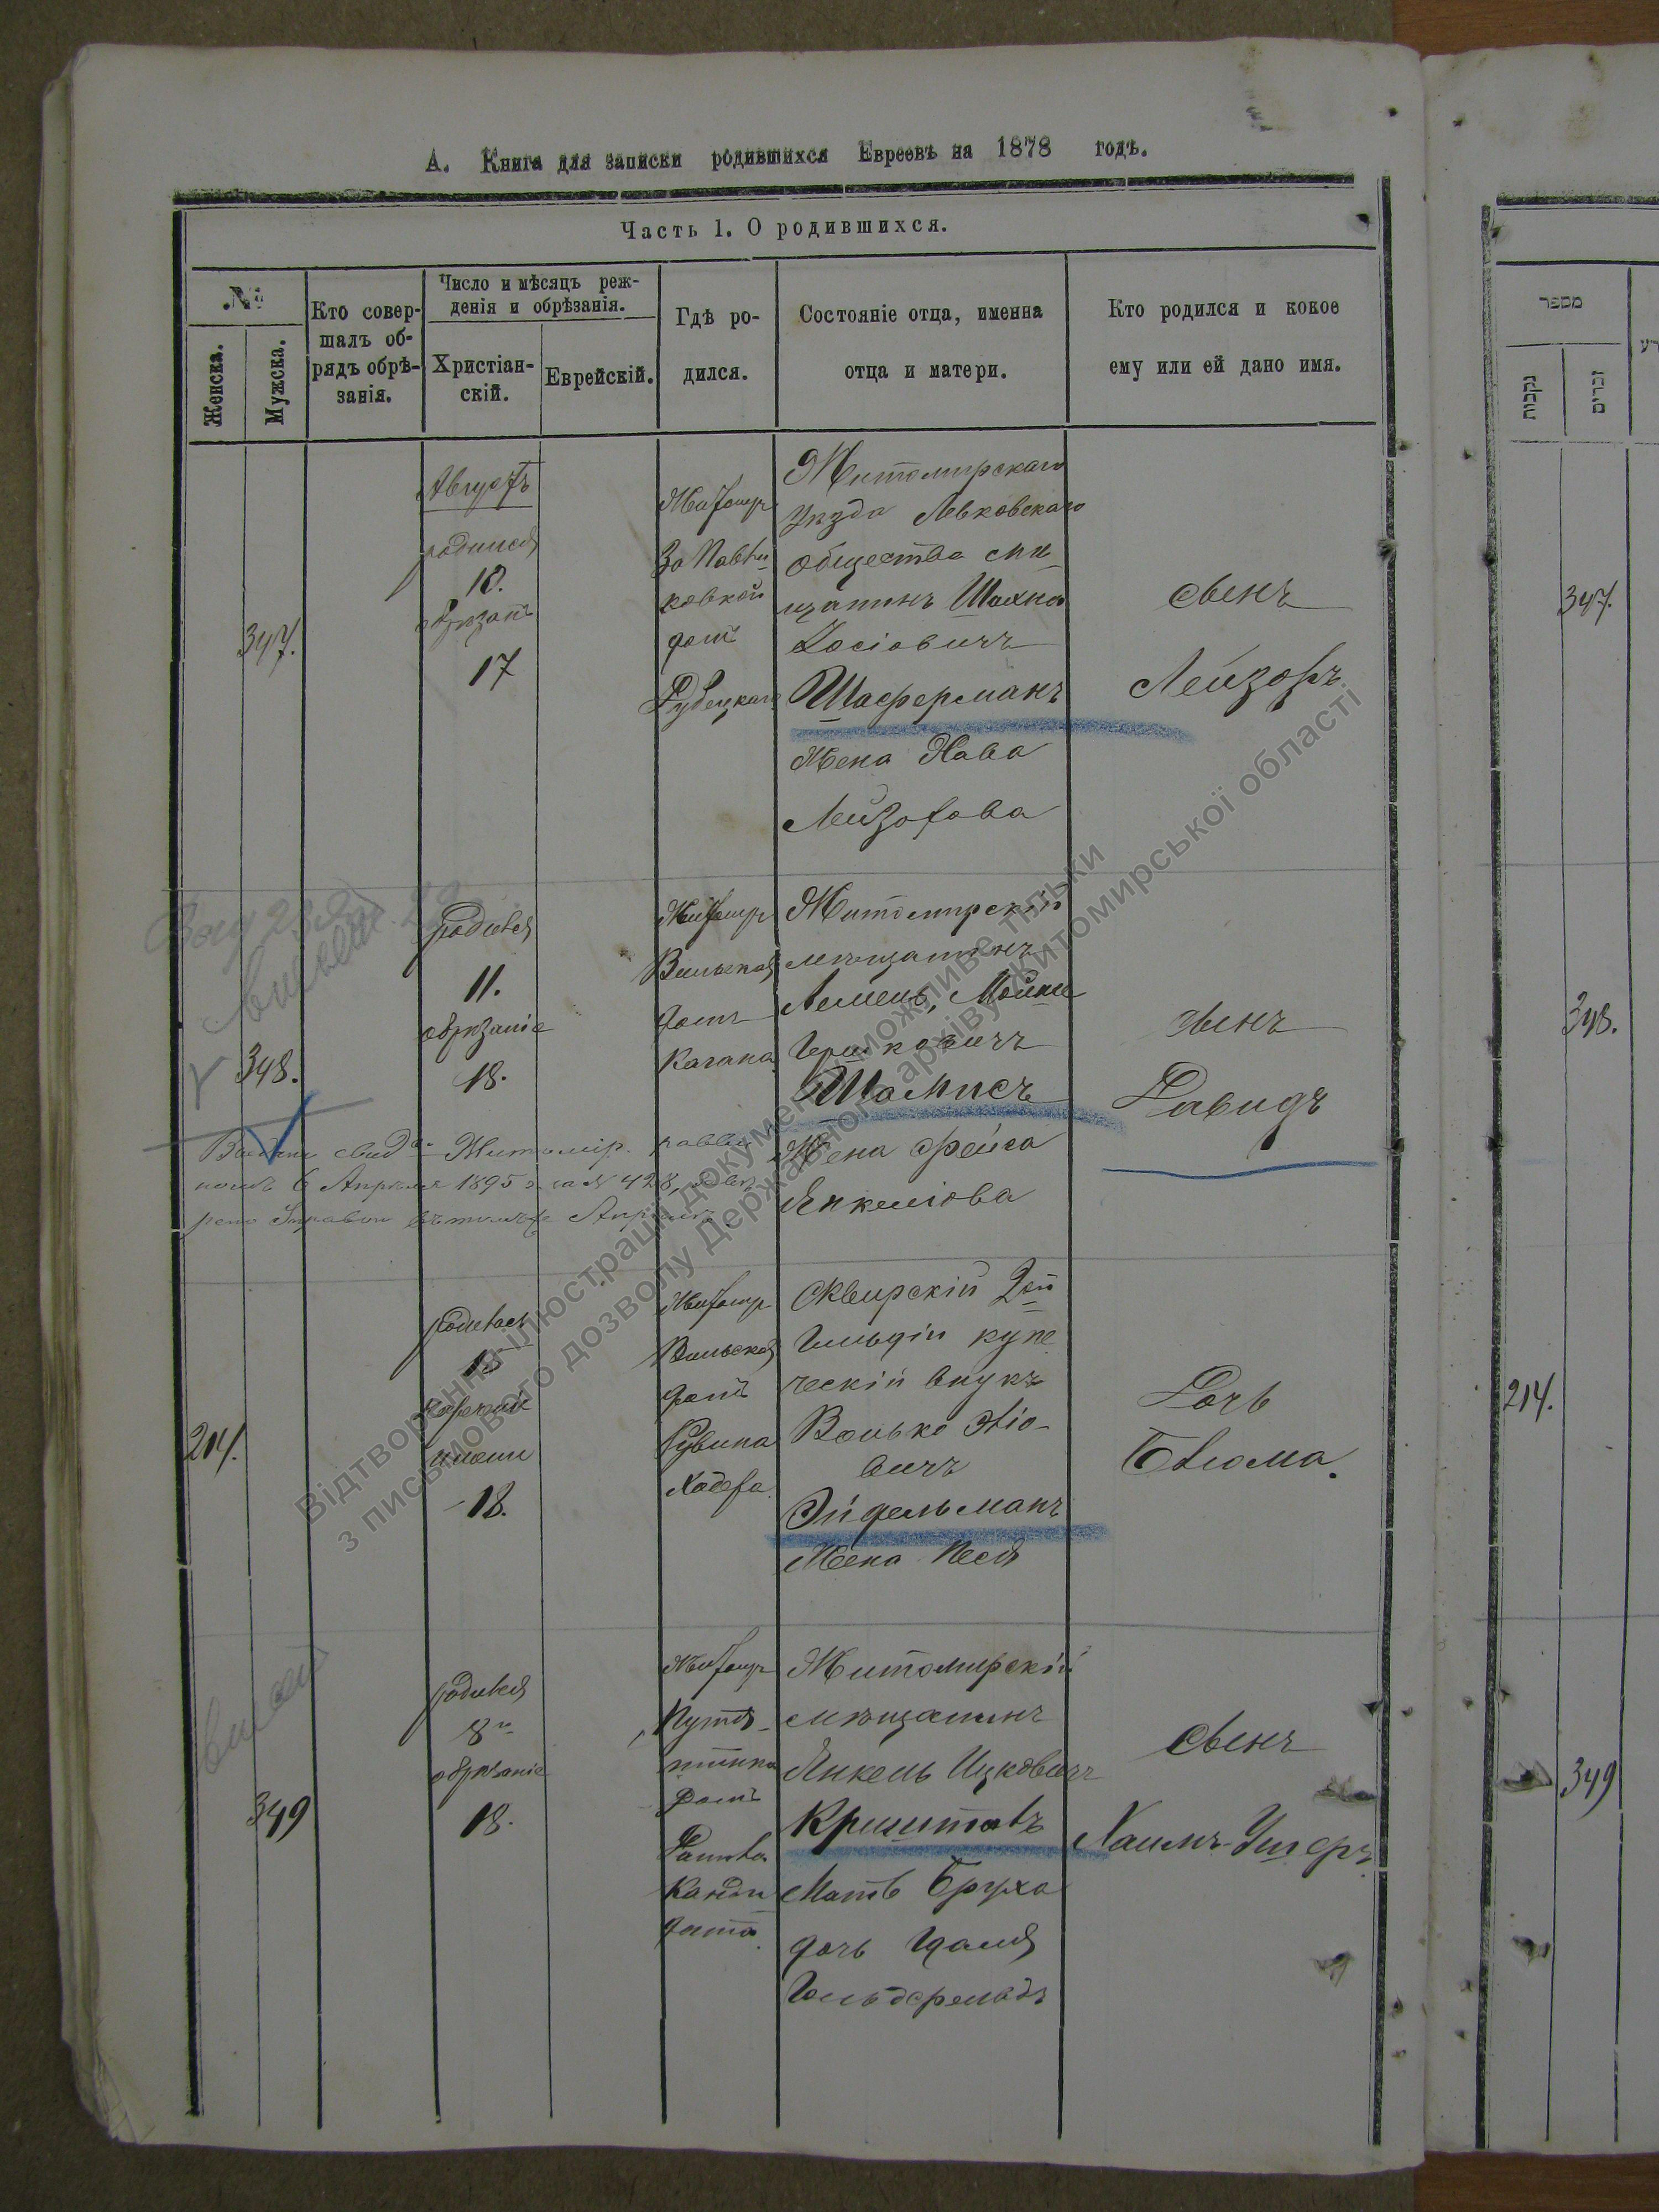 А. Книга для записки родившихся Евреевъ на 1878 годъ.
Часть 1. О родившихся.
№
Женска.
Мужска.
Кто совер-
шалъ об-
рядъ обрѣ-
занія.
Число и мѣсяцъ реж-
денія и обрѣзанія.
Христіан-
скій.
Еврейскій.
Гдѣ ро-
дился.
Состояніе отца, именна
отца и матери.
Кто родился и кокое
ему или ей дано имя.
347.
Августъ
родился
10.
обрезанъ
17
Житомир
домъ
Житомирскаго
Уезда Левковскаго
общества мѣ
щанинъ Шахна
Іосіовичъ
Шаферманъ
Жена Хава
Лейзорова
сынъ
Лейзоръ
348.
родился
11.
обрезаніе
18.
Житомир
Вильская
домъ
Кагана
Житомирскій
мѣщанинъ
Лемель, Мошко
Гершковичъ
Шамисъ
Жена Фейга
Янкелиова
сынъ
Давидъ
номъ 6 Апреля 1895 г. за № 428,
214.
родилась
18.
Житомир
Вильская
домъ
Рувина
Ходера
Сквирскій 2ой
Гильдіи купе
ческій внукъ
Волько Эліо-
вичъ
Эйдельманъ
Жена Песя
Дочь
Блюма.
349
родился
8го
обрезаніе
18.
Житомир
Путя-
тинка
домъ
Канди
дата
Житомирскій
мѣщанинъ
Янкель Ицковичъ
Криштовъ
Мать Бруха
дочь Идаля
Сынъ
Хаимъ-Ушеръ
מספר
נקבות
זכרים
347.
348.
214.
349
Відтворення-ілюстрації документу можливе тільки
з письмового дозволу Державного архіву Житомирської області